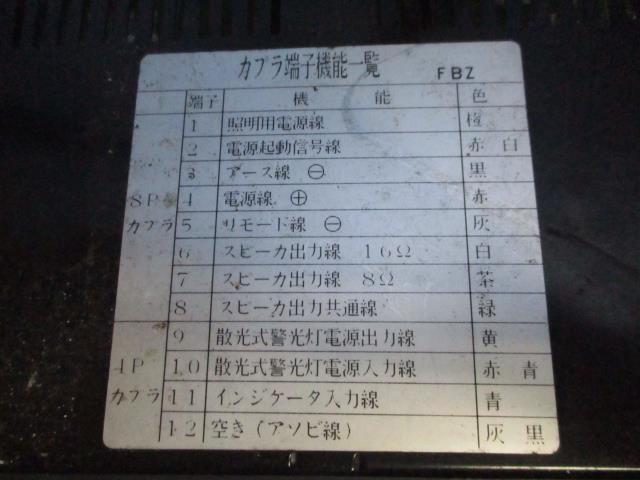 カプラ端子機能一覧 FBZ
端子 機能 色
1 照明用電源線 橙
2 電源起動信号線 赤白
3 アース線 ⊖ 黒
8P 4 電源線 ⊕ 赤
カプラ 5 リモート線 ⊖ 灰
6 スピーカ出力線 16Ω 白
7 スピーカ出力線 8Ω 茶
8 スピーカ出力共通線 緑
9 散光式警光灯電源出力線 黄
4P 10 散光式警光灯電源入力線 赤青
カプラ 11 インジケータ入力線 青
12 空き(アソビ線) 灰黒